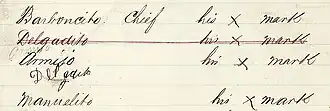 Barboncito Chief his X mark
Delgadito his X mark
Armijo his X mark
Delgado
Manuelito his X mark